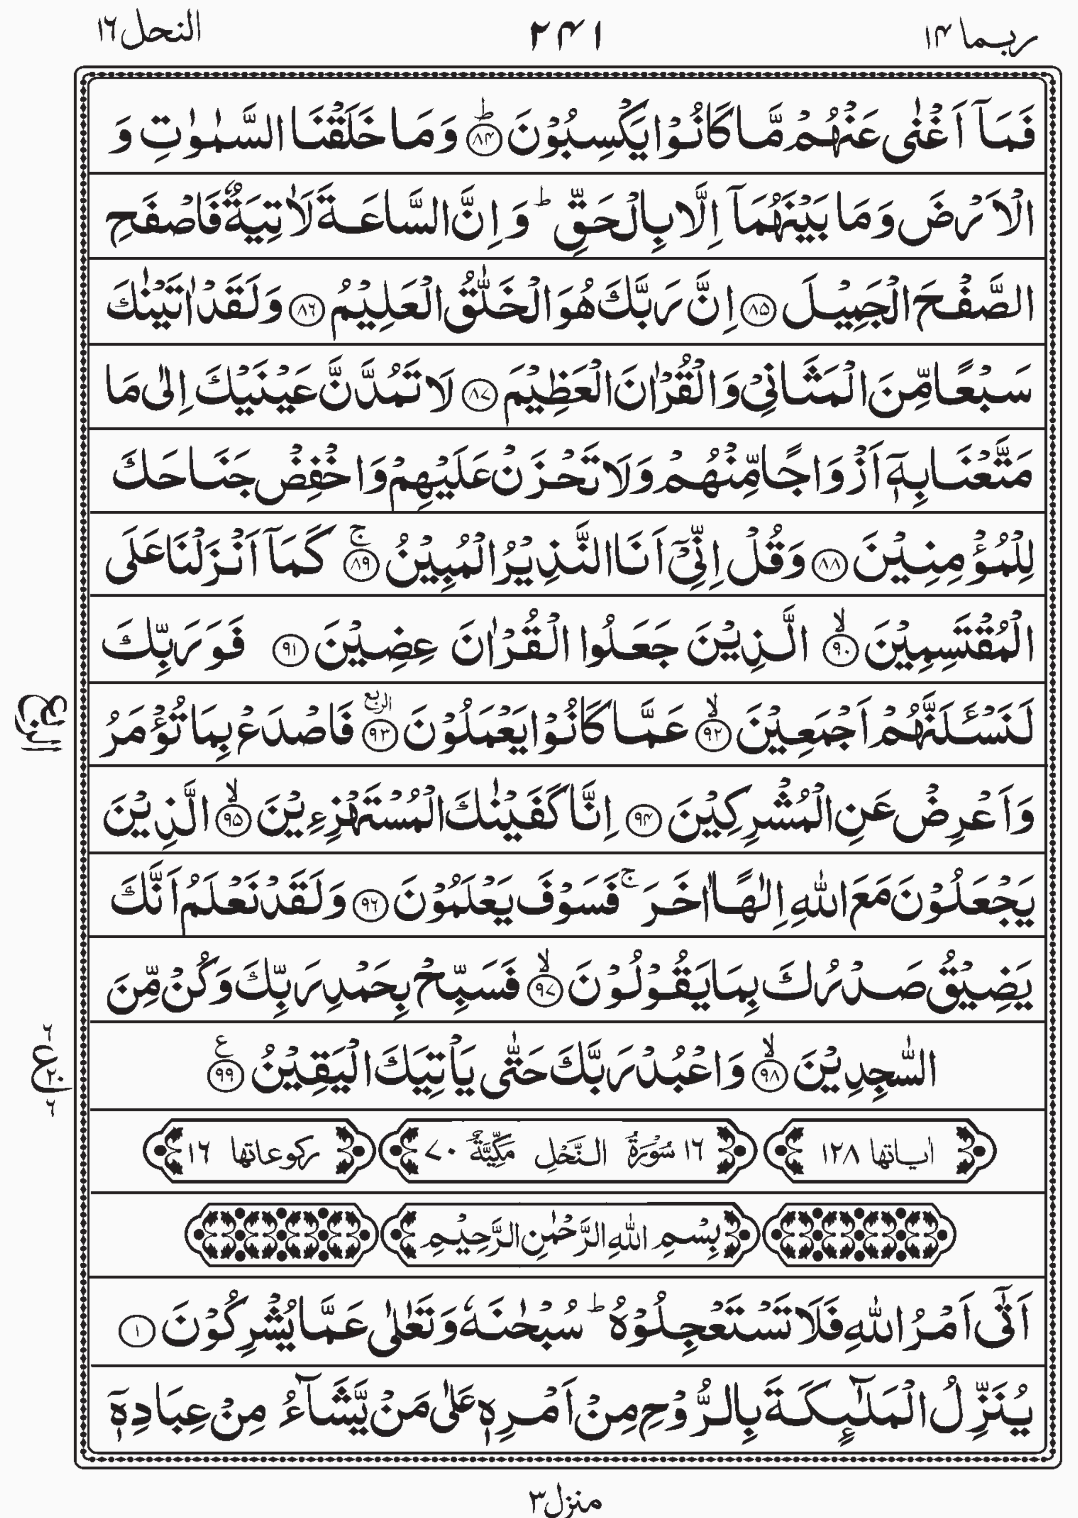 ربما ١٤ ٢٤١ النحل ١٦
فَمَآ اَغْنٰى عَنْهُمْ مَّا كَانُوْا يَكْسِبُوْنَ ؕ ﴿٨٤﴾ وَمَا خَلَقْنَا السَّمٰوٰتِ وَ
الْاَرْضَ وَمَا بَيْنَهُمَآ اِلَّا بِالْحَقِّ ؕ وَاِنَّ السَّاعَةَ لَاٰتِيَةٌ فَاصْفَحِ
الصَّفْحَ الْجَمِيْلَ ﴿٨٥﴾ اِنَّ رَبَّكَ هُوَ الْخَلّٰقُ الْعَلِيْمُ ﴿٨٦﴾ وَلَقَدْ اٰتَيْنٰكَ
سَبْعًا مِّنَ الْمَثَانِيْ وَالْقُرْاٰنَ الْعَظِيْمَ ﴿٨٧﴾ لَا تَمُدَّنَّ عَيْنَيْكَ اِلٰى مَا
مَتَّعْنَا بِهٖٓ اَزْوَاجًا مِّنْهُمْ وَلَا تَحْزَنْ عَلَيْهِمْ وَاخْفِضْ جَنَاحَكَ
لِلْمُؤْمِنِيْنَ ﴿٨٨﴾ وَقُلْ اِنِّيْٓ اَنَا النَّذِيْرُ الْمُبِيْنُ ۚ ﴿٨٩﴾ كَمَآ اَنْزَلْنَا عَلَى
الْمُقْتَسِمِيْنَ ۙ ﴿٩٠﴾ الَّذِيْنَ جَعَلُوا الْقُرْاٰنَ عِضِيْنَ ﴿٩١﴾ فَوَرَبِّكَ
لَنَسْـَٔلَنَّهُمْ اَجْمَعِيْنَ ۙ ﴿٩٢﴾ عَمَّا كَانُوْا يَعْمَلُوْنَ الربع ﴿٩٣﴾ فَاصْدَعْ بِمَا تُؤْمَرُ
الربع
وَاَعْرِضْ عَنِ الْمُشْرِكِيْنَ ﴿٩٤﴾ اِنَّا كَفَيْنٰكَ الْمُسْتَهْزِءِيْنَ ۙ ﴿٩٥﴾ الَّذِيْنَ
يَجْعَلُوْنَ مَعَ اللّٰهِ اِلٰهًا اٰخَرَ ۚ فَسَوْفَ يَعْلَمُوْنَ ﴿٩٦﴾ وَلَقَدْ نَعْلَمُ اَنَّكَ
يَضِيْقُ صَدْرُكَ بِمَا يَقُوْلُوْنَ ۙ ﴿٩٧﴾ فَسَبِّحْ بِحَمْدِ رَبِّكَ وَكُنْ مِّنَ
السّٰجِدِيْنَ ۙ ﴿٩٨﴾ وَاعْبُدْ رَبَّكَ حَتّٰى يَاْتِيَكَ الْيَقِيْنُ ع ﴿٩٩﴾
٦ ع ٢٠ ٦
اٰياتها ١٢٨ ١٦ سُوْرَةُ النَّحْلِ مَكِّيَّةٌ ٧٠ ركوعاتها ١٦
بِسْمِ اللّٰهِ الرَّحْمٰنِ الرَّحِيْمِ
اَتٰٓى اَمْرُ اللّٰهِ فَلَا تَسْتَعْجِلُوْهُ ؕ سُبْحٰنَهٗ وَتَعٰلٰى عَمَّا يُشْرِكُوْنَ ﴿١﴾
يُنَزِّلُ الْمَلٰٓئِكَةَ بِالرُّوْحِ مِنْ اَمْرِهٖ عَلٰى مَنْ يَّشَآءُ مِنْ عِبَادِهٖٓ
منزل ٣